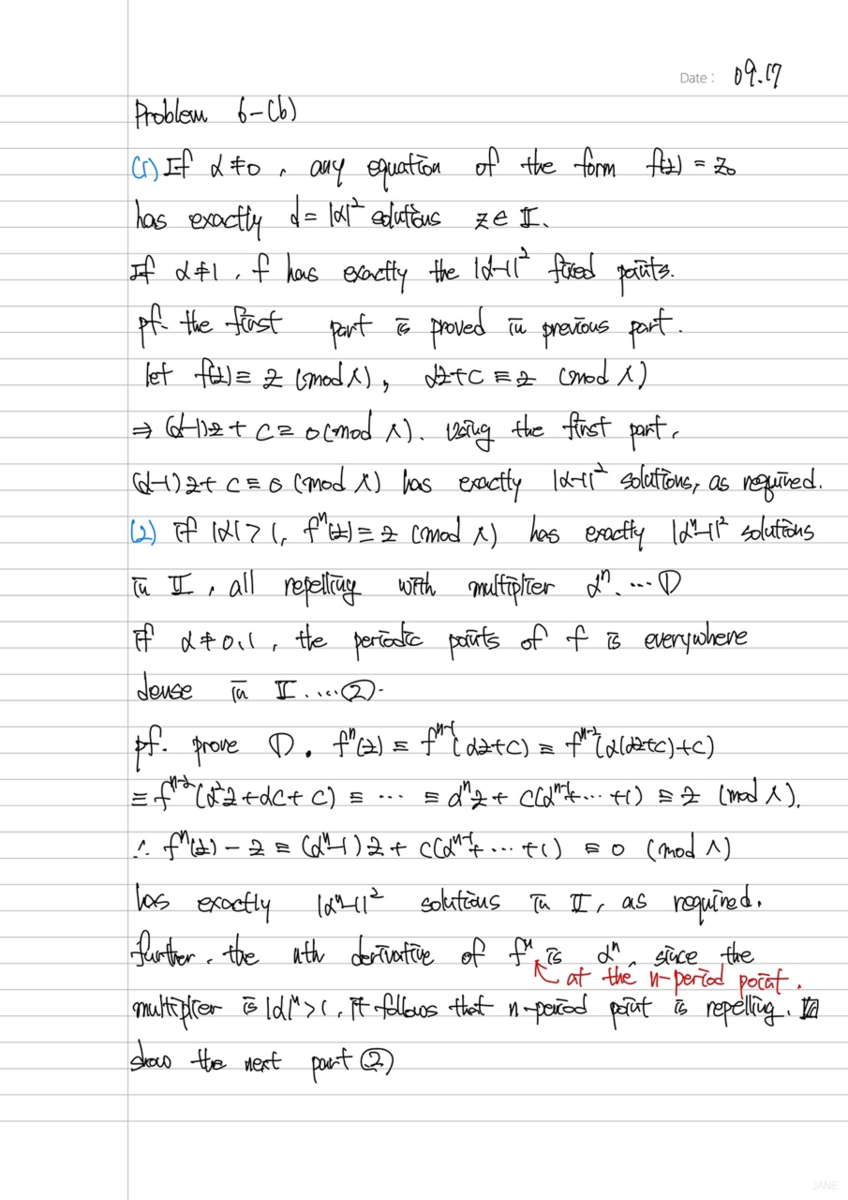 Date : 09.17
Problem 6-(b)
(1) If α≠0, any equation of the form f(z) = z₀
has exactly d = |α|² solutions z ∈ 𝕋.
If α≠1, f has exactly the |α-1|² fixed points.
pf. the first part is proved in previous part.
let f(z) ≡ z (mod Λ), αz+c ≡ z (mod Λ)
⇒ (α-1)z + c ≡ 0 (mod Λ). Using the first part,
(α-1)z + c ≡ 0 (mod Λ) has exactly |α-1|² solutions, as required.
(2) if |α| > 1, fⁿ(z) ≡ z (mod Λ) has exactly |αⁿ-1|² solutions
in 𝕋, all repelling with multiplier αⁿ. … ①
if α≠0,1, the periodic points of f is everywhere
dense in 𝕋. … ②.
pf. prove ①. fⁿ(z) ≡ fⁿ⁻¹(αz+c) ≡ fⁿ⁻²(α(αz+c)+c)
≡ fⁿ⁻²(α²z+αc+c) ≡ … ≡ αⁿz + c(αⁿ⁻¹+…+1) ≡ z (mod Λ).
∴ fⁿ(z) - z ≡ (αⁿ-1)z + c(αⁿ⁻¹+…+1) ≡ 0 (mod Λ)
has exactly |αⁿ-1|² solutions in 𝕋, as required.
further, the nth derivative of fⁿ is αⁿ, since the
at the n-period point.
multiplier is |α|ⁿ>1, it follows that n-period point is repelling.
show the next part ②
JANE